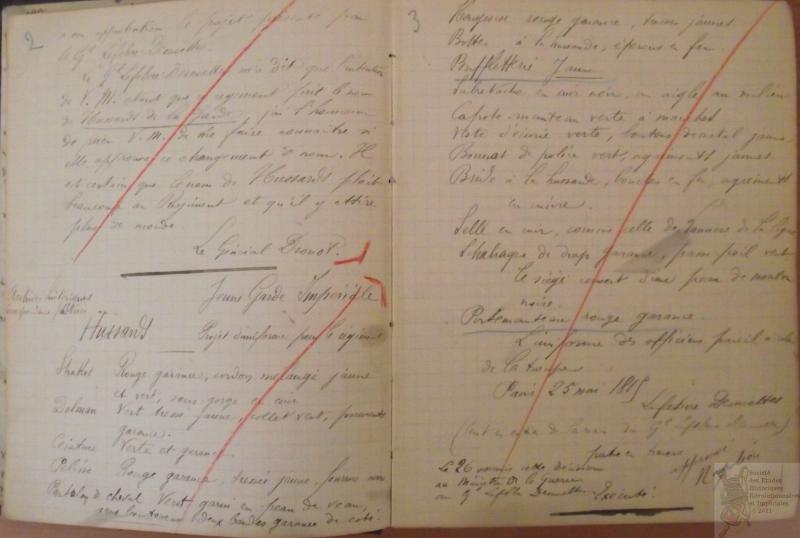 2
à son approbation le projet présenté par
le Gal Lefebvre-Desnoettes.
Le Gal Lefebvre-Desnoettes m'a dit que l'intention
de V. M. étant que ce régiment prit le nom
de Hussards de la Garde, j'ai l'honneur
de prier V. M. de me faire connaître si
Elle approuve ce changement de nom. Il
est certain que le nom de Hussards plait
beaucoup au Régiment et qu'il y attire
plus de monde.
Le Général Drouot.
Jeune Garde Impériale
Archives historiques
Hussards Projet d'uniforme pour le régiment
Shakos Rouge garance, cordon mélangé jaune
et vert, sous-gorge en cuir
Dolman Vert tresse jaune, collet vert, parements
garance.
Ceinture Verte et garance.
Pelisse Rouge garance, tresse jaune, fourrure noire
Pantalon de cheval Vert garni en peau de veau,
deux bandes garance de côté.
3
Hongroise rouge garance, tresses jaunes.
Bottes à la hussarde, éperons en fer
Buffleterie Jaune
Sabretache en cuir noir, un aigle au milieu
Capote-manteau verte à manches
Veste d'écurie verte, boutons de métal jaune
Bonnet de police vert, agréments jaunes.
Bride à la hussarde, boucles en fer, agréments
en cuivre.
Selle en cuir, comme celle des Lanciers de la Ligne
Schabraque de drap garance, passepoil vert
le siège couvert d'une peau de mouton
noire.
Portemanteau rouge garance.
L'uniforme des officiers pareil à celui
de la troupe
Paris 25 mai 1815
Lefebvre Desnoettes
(écrit en entier de la main du Gal Lefebvre Desnoettes)
approuvé
Nap
Le 26 cette décision
au Ministre de la guerre
au Gal Lefebvre Desnoettes Exécuté.
Société
des Etudes
Historiques
Révolutionnaires
et Impériales
© 2011